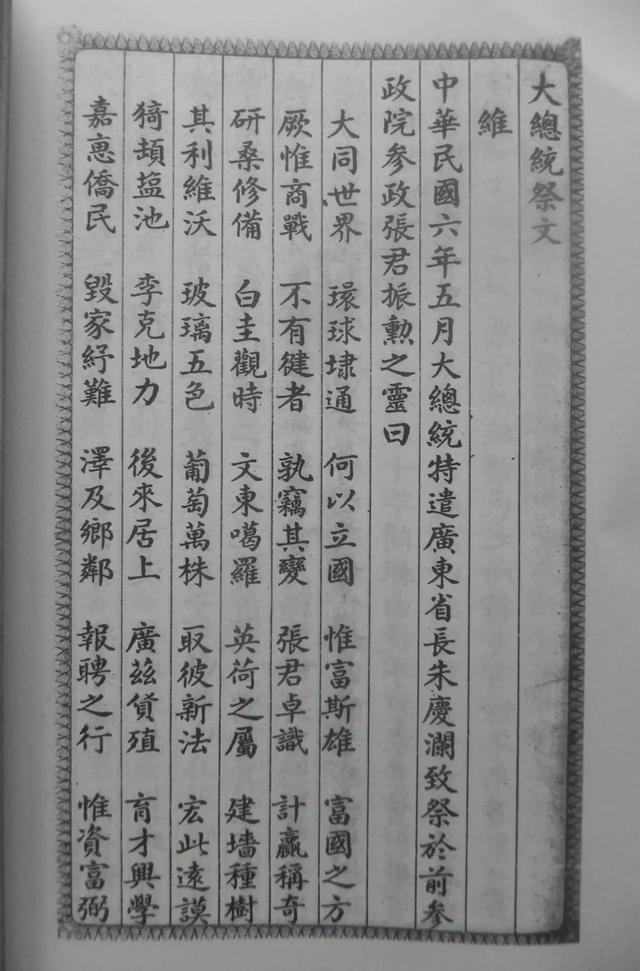 大總統祭文
維
中華民國六年五月大總統特遣廣東省長朱慶瀾致祭於前參
政院參政張君振勲之靈曰
大同世界 環球埭通 何以立國 惟富斯雄 富國之方
厥惟商戰 不有健者 孰竊其變 張君卓識 計贏稱奇
研桑修備 白圭觀時 文東噶羅 英荷之屬 建墻種樹
其利維沃 玻璃五色 葡萄萬株 取彼新法 宏此遠謨
猗頓鹽池 李克地力 後來居上 廣茲貨殖 育才興學
嘉惠僑民 毀家紓難 澤及鄉鄰 報聘之行 惟資富弼